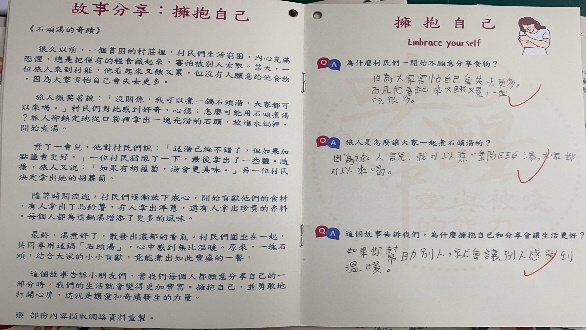 故事分享：擁抱自己
《石頭湯的奇蹟》
很久以前，一個貧困的村莊裡，村民們生活窮困，內心充滿
恐懼，總是把僅有的糧食藏起來，害怕被別人索取。某天，一
位旅人來到村莊，他看起來又餓又累，但沒有人願意給他食物
，因為大家害怕自己會失去更多。
旅人微笑著說：「沒關係，我可以煮一鍋石頭湯，大家都可
以來喝。」村民們對此感到好奇，心想：怎麼可能用石頭煮湯
？旅人卻鎮定地從口袋裡拿出一塊光滑的石頭，放進水鍋裡，
開始煮湯。
煮了一會兒，他對村民們說：「這湯已經不錯了，但如果加
點鹽會更好。」一位村民猶豫了一下，最後拿出了一些鹽。隨
後，旅人又說：「如果有胡蘿蔔，湯會更美味。」另一位村民
決定拿出她的胡蘿蔔。
隨著時間流逝，村民們逐漸放下戒心，開始貢獻他們的食材
，有人拿出了馬鈴薯，有人拿出洋蔥，還有人拿出珍貴的香料
。每個人都為這鍋湯增添了更多的風味。
最終，湯煮好了，散發出濃郁的香氣。村民們圍坐在一起，
共同享用這鍋「石頭湯」，心中感到無比溫暖。原來，一塊石
頭，結合大家的小小貢獻，竟能煮出如此豐盛的一餐。
這個故事告訴小朋友們，當我們每個人都願意分享自己的一
部分時，我們的生活就會變得更加豐富。擁抱自己，並勇敢地
打開心扉，這就是讓愛和奇蹟發生的力量。
※ 部份內容擷取網路資料重製。
擁抱自己
Embrace yourself
Q A 為什麼村民們一開始不願意分享食物？
因為大家害怕自己會失去更多，
Q A 旅人是怎麼讓大家一起煮石頭湯的？
因為旅人說，我可以煮一鍋石頭湯，大家都
可以來喝。
Q A 這個故事告訴我們，為什麼擁抱自己和分享會讓生活更好？
如果你幫助別人，就會讓別人感到
溫暖。